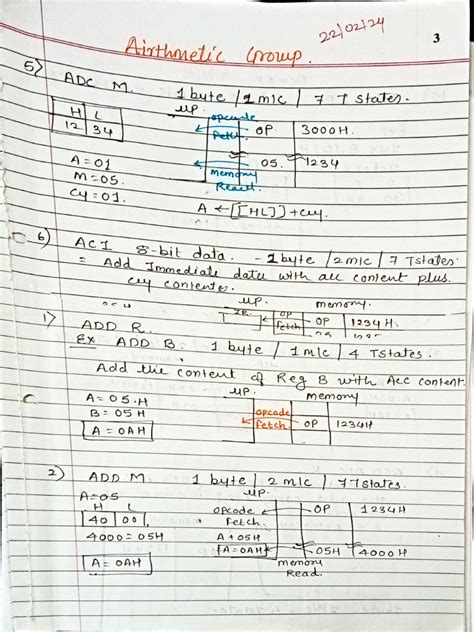 22/02/24
3
Airthmetic Group.
5) ADC M. 1 byte / 2 m/c / 7 T states.
H L
12 34
μP.
opcode
fetch. OP 3000H.
05. 1234
Memory
Read.
A = 01
M = 05.
Cy = 01.
A ← [[HL]] + cy.
6) ACI 8-bit data. - 2 byte / 2 m/c / 7 Tstates.
= Add Immediate data with acc content plus
cy contents.
μP. memory.
OP
fetch OP 1234H.
1) ADD R.
EX ADD B. 1 byte / 1 m/c / 4 Tstates.
Add the content of Reg B with Acc content.
μP. memory
A = 05.H
B = 05H
A = 0AH
opcode
fetch. OP 1234H
2) ADD M. 1 byte / 2 m/c / 7 Tstates.
μP.
A = 05
H L
40 00
4000 = 05H
A = 0AH
opcode OP 1234H
Fetch.
A + 05H
A = 0AH 05H 4000H
memory
Read.